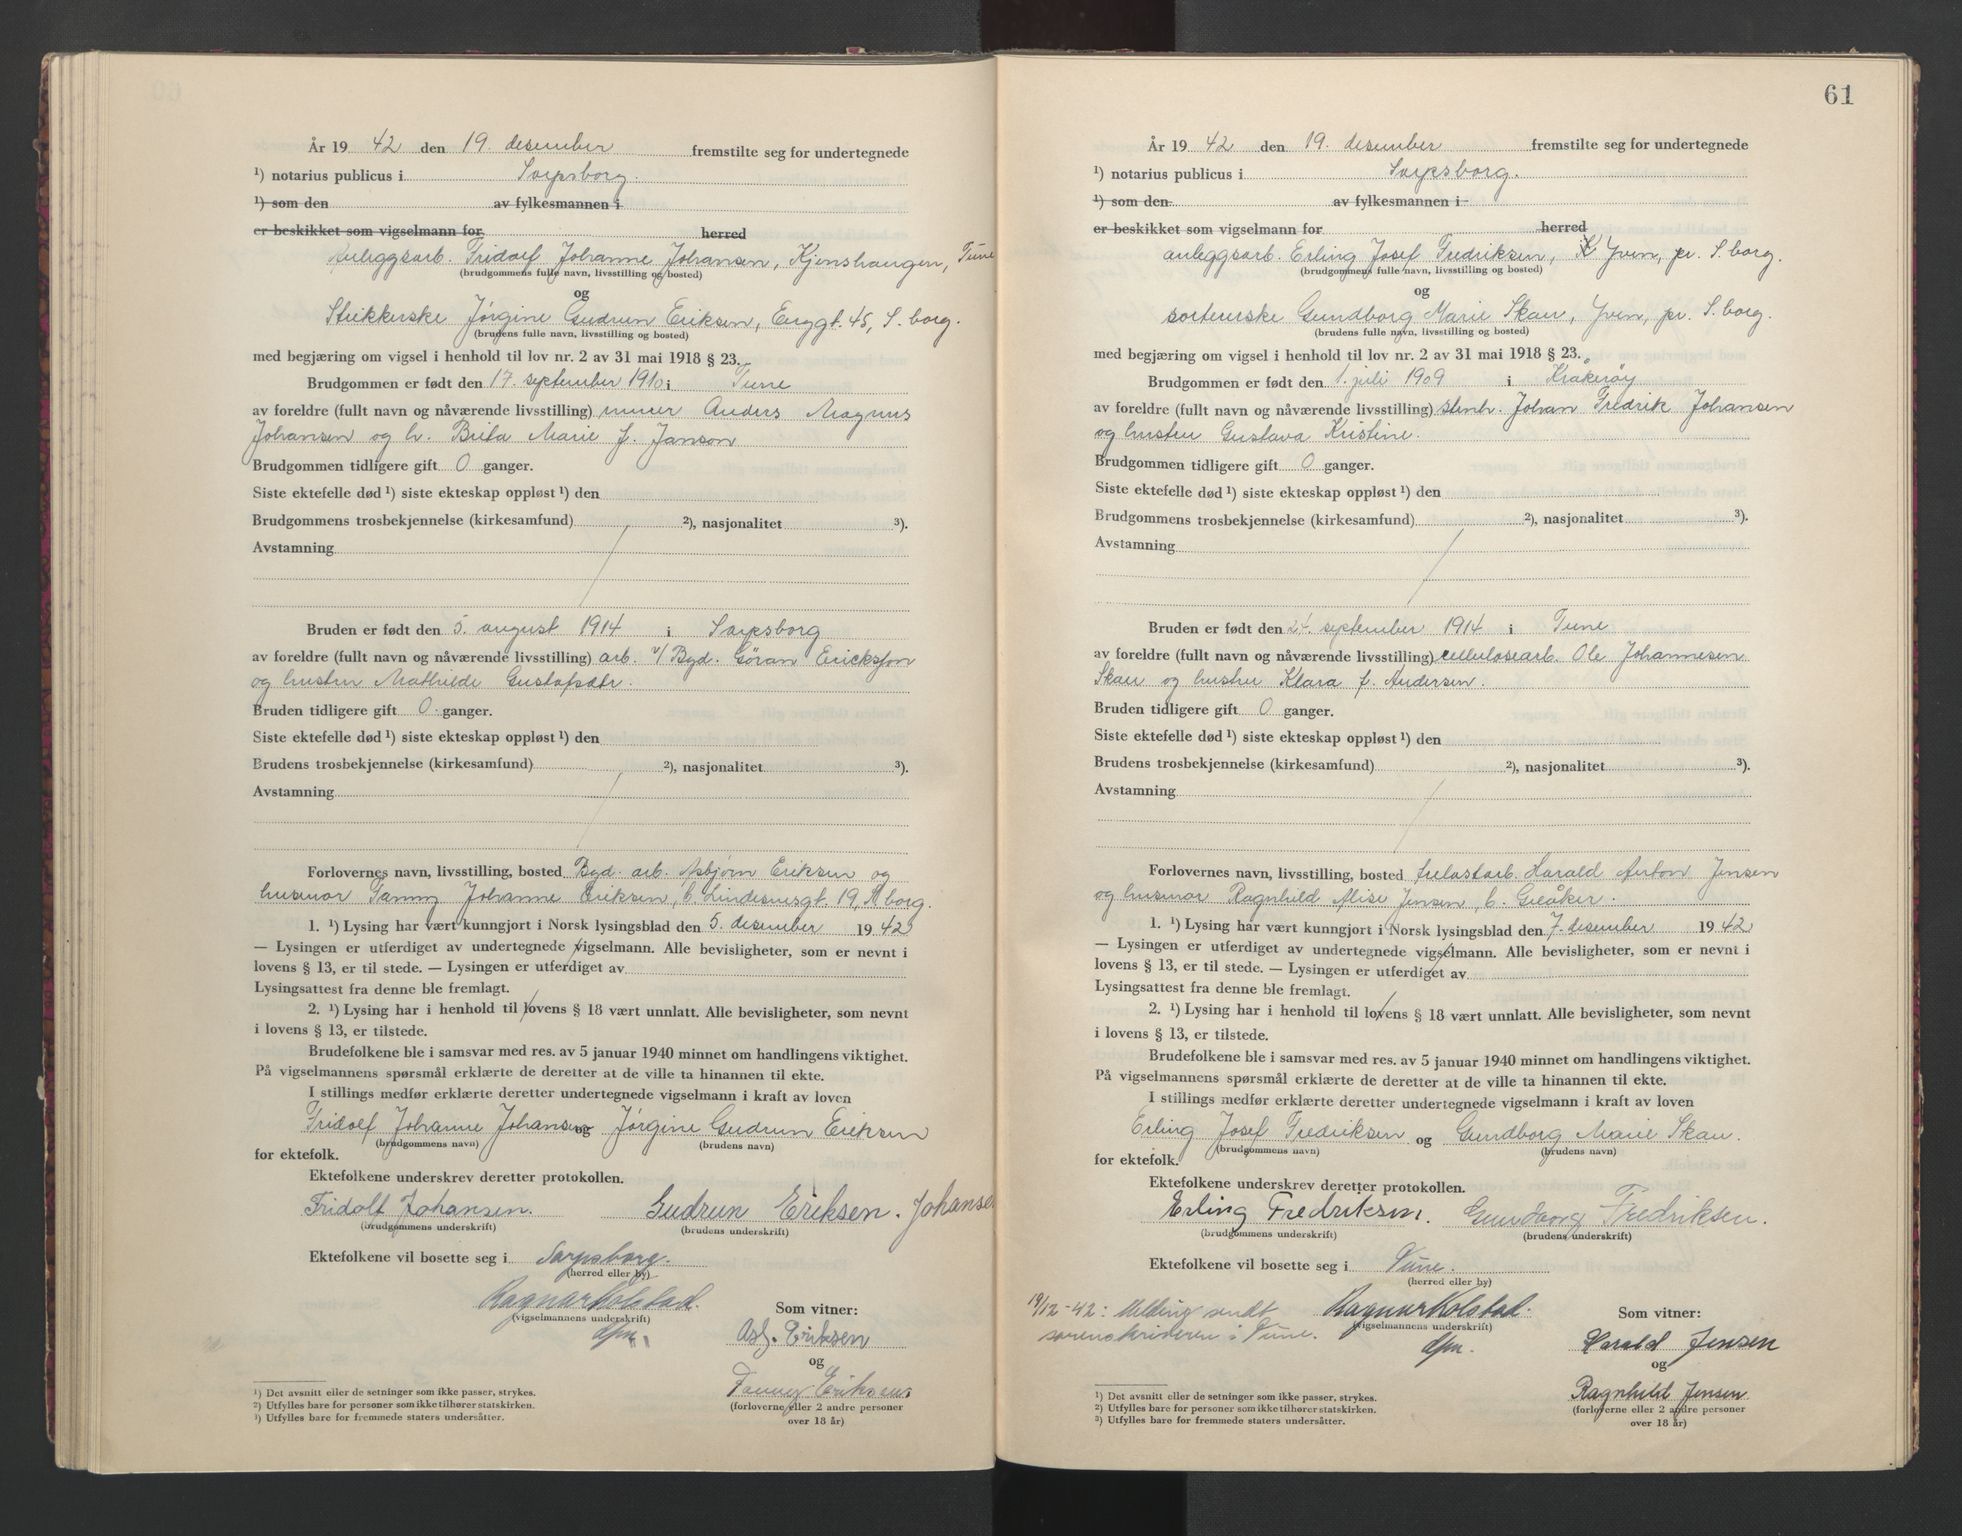 År 19 42 den 19. desember fremstilte seg for undertegnede
1) notarius publicus i Sarpsborg.
1) som den av fylkesmannen i
er beskikket som vigselmann for herred
Anleggsarb. Fridolf Johanne Johansen, Kjenshaugen, Tune
(brudgommens fulle navn, livsstilling og bosted)
og
Strikkerske Jørgine Gudrun Eriksen, Enggt. 45, S.borg.
(brudens fulle navn, livsstilling og bosted)
med begjæring om vigsel i henhold til lov nr. 2 av 31 mai 1918 § 23.
Brudgommen er født den 17. september 1910 i Tune
av foreldre (fullt navn og nåværende livsstilling) murer Anders Magnus
Johansen og h. Brita Marie f. Janson
Brudgommen tidligere gift 0 ganger.
Siste ektefelle død 1) siste ekteskap oppløst 1) den
Brudgommens trosbekjennelse (kirkesamfund) 2), nasjonalitet 3).
Avstamning
Bruden er født den 5. august 1914 i Sarpsborg
av foreldre (fullt navn og nåværende livsstilling) arb. v/Byd. Göran Ericksson
og hustru Mathilde Gustafsdtr.
Bruden tidligere gift 0. ganger.
Siste ektefelle død 1) siste ekteskap oppløst 1) den
Brudens trosbekjennelse (kirkesamfund) 2), nasjonalitet 3).
Avstamning
Forlovernes navn, livsstilling, bosted Byd. arb. Asbjørn Eriksen og
husmor Fanny Johanne Eriksen, b. Lindesnesgt. 19, S.borg.
1. 1) Lysing har vært kunngjort i Norsk lysingsblad den 5. desember 1942
— Lysingen er utferdiget av undertegnede vigselmann. Alle bevisligheter, som er nevnt i
lovens § 13, er til stede. — Lysingen er utferdiget av
Lysingsattest fra denne ble fremlagt.
2. 1) Lysing har i henhold til lovens § 18 vært unnlatt. Alle bevisligheter, som nevnt
i lovens § 13, er tilstede.
Brudefolkene ble i samsvar med res. av 5 januar 1940 minnet om handlingens viktighet.
På vigselmannens spørsmål erklærte de deretter at de ville ta hinannen til ekte.
I stillings medfør erklærte deretter undertegnede vigselmann i kraft av loven
Fridolf Johanne Johansen og Jørgine Gudrun Eriksen
(brudgommens navn) (brudens navn)
for ektefolk.
Ektefolkene underskrev deretter protokollen.
Fridolf Johansen. Gudrun Eriksen. Johansen
(brudgommens underskrift) (brudens underskrift)
Ektefolkene vil bosette seg i Sarpsborg.
(herred eller by)
Ragnar Kolstad. Som vitner:
(vigselmannens underskrift)
dfm. Asbj. Eriksen
og
Fanny Eriksen
(forloverne eller 2 andre personer
over 18 år)
1) Det avsnitt eller de setninger som ikke passer, strykes.
2) Utfylles bare for personer som ikke tilhører statskirken.
3) Utfylles bare for fremmede staters undersåtter.
61
År 19 42 den 19. desember fremstilte seg for undertegnede
1) notarius publicus i Sarpsborg.
1) som den av fylkesmannen i
er beskikket som vigselmann for herred
anleggsarb. Erling Josef Fredriksen, Yven, pr. S.borg.
(brudgommens fulle navn, livsstilling og bosted)
og
sorterske Gundborg Marie Skau, Yven, pr. S.borg.
(brudens fulle navn, livsstilling og bosted)
med begjæring om vigsel i henhold til lov nr. 2 av 31 mai 1918 § 23.
Brudgommen er født den 1. juli 1909 i Kråkerøy
av foreldre (fullt navn og nåværende livsstilling) stenh. Johan Fredrik Johansen
og hustru Gustava Kristine.
Brudgommen tidligere gift 0 ganger.
Siste ektefelle død 1) siste ekteskap oppløst 1) den
Brudgommens trosbekjennelse (kirkesamfund) 2), nasjonalitet 3).
Avstamning
Bruden er født den 24. september 1914 i Tune
av foreldre (fullt navn og nåværende livsstilling) cellulosearb. Ole Johannesen
Skau og hustru Klara f. Andersen.
Bruden tidligere gift 0 ganger.
Siste ektefelle død 1) siste ekteskap oppløst 1) den
Brudens trosbekjennelse (kirkesamfund) 2), nasjonalitet 3).
Avstamning
Forlovernes navn, livsstilling, bosted trelastarb. Harald Anton Jensen
og husmor Ragnhild Alise Jensen, b. Greåker.
1. 1) Lysing har vært kunngjort i Norsk lysingsblad den 7. desember 1942
— Lysingen er utferdiget av undertegnede vigselmann. Alle bevisligheter, som er nevnt i
lovens § 13, er til stede. — Lysingen er utferdiget av
Lysingsattest fra denne ble fremlagt.
2. 1) Lysing har i henhold til lovens § 18 vært unnlatt. Alle bevisligheter, som nevnt
i lovens § 13, er tilstede.
Brudefolkene ble i samsvar med res. av 5 januar 1940 minnet om handlingens viktighet.
På vigselmannens spørsmål erklærte de deretter at de ville ta hinannen til ekte.
I stillings medfør erklærte deretter undertegnede vigselmann i kraft av loven
Erling Josef Fredriksen og Gundborg Marie Skau.
(brudgommens navn) (brudens navn)
for ektefolk.
Ektefolkene underskrev deretter protokollen.
Erling Fredriksen. Gundborg Fredriksen.
(brudgommens underskrift) (brudens underskrift)
Ektefolkene vil bosette seg i Tune.
(herred eller by)
19/12-42: Melding sendt Ragnar Kolstad. Som vitner:
sorenskriveren i Tune. (vigselmannens underskrift)
dfm. Harald Jensen
og
Ragnhild Jensen
(forloverne eller 2 andre personer
over 18 år)
1) Det avsnitt eller de setninger som ikke passer, strykes.
2) Utfylles bare for personer som ikke tilhører statskirken.
3) Utfylles bare for fremmede staters undersåtter.